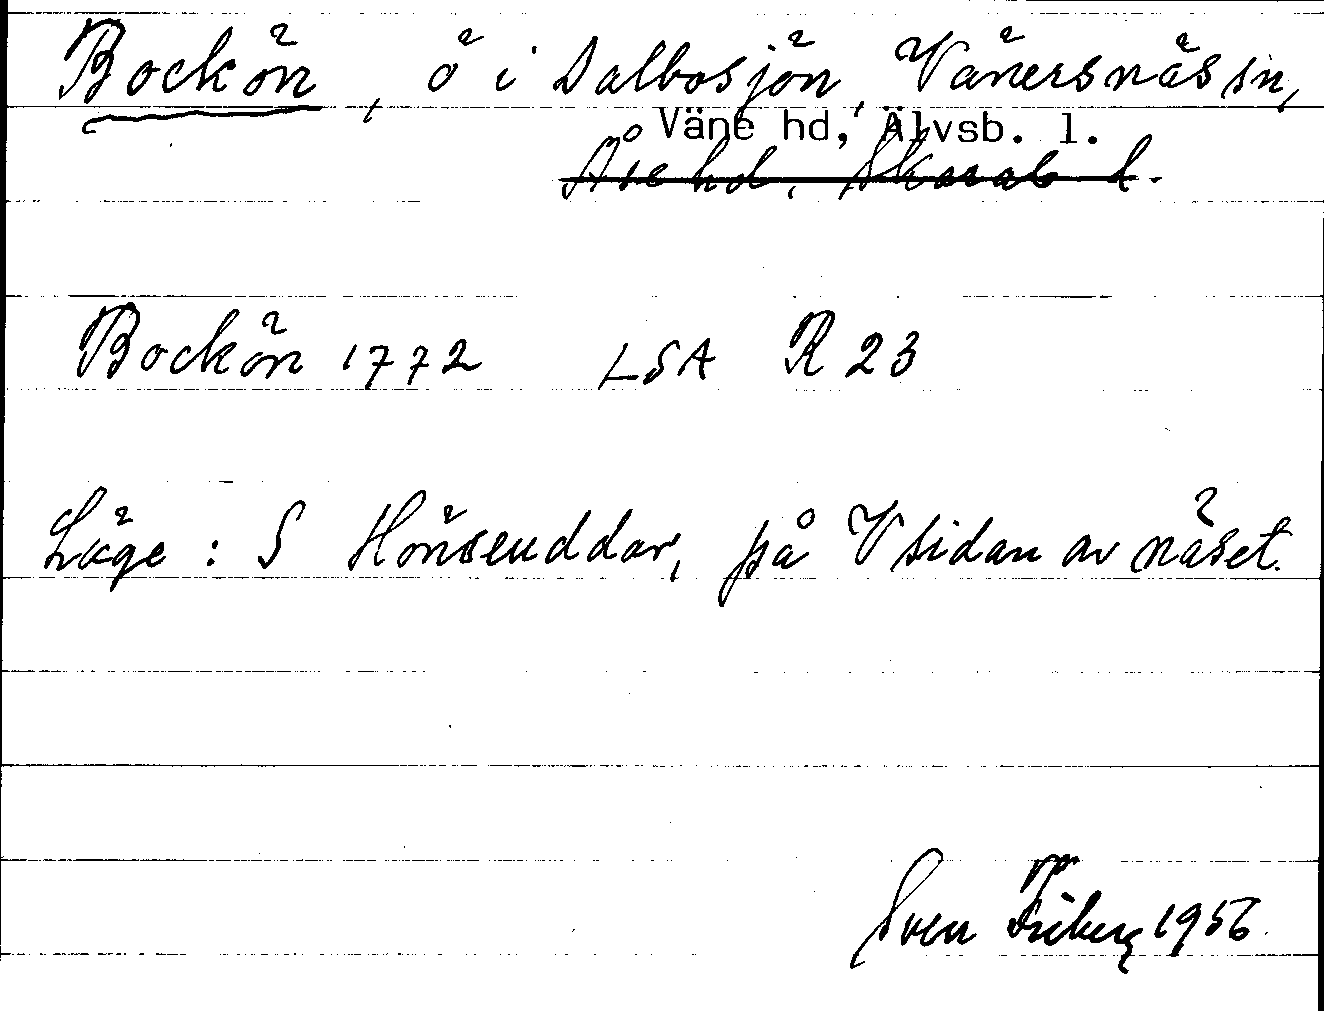 Bockön, ö i Dalbosjön, Vänersnäs sn,
Väne hd, Älvsb. l.
Åse hd, Skarab l.
Bockön 1772 LSA R 23
Läge: S Hönsenuddar, på V sidan av näset.
Sven Friberg 1956.